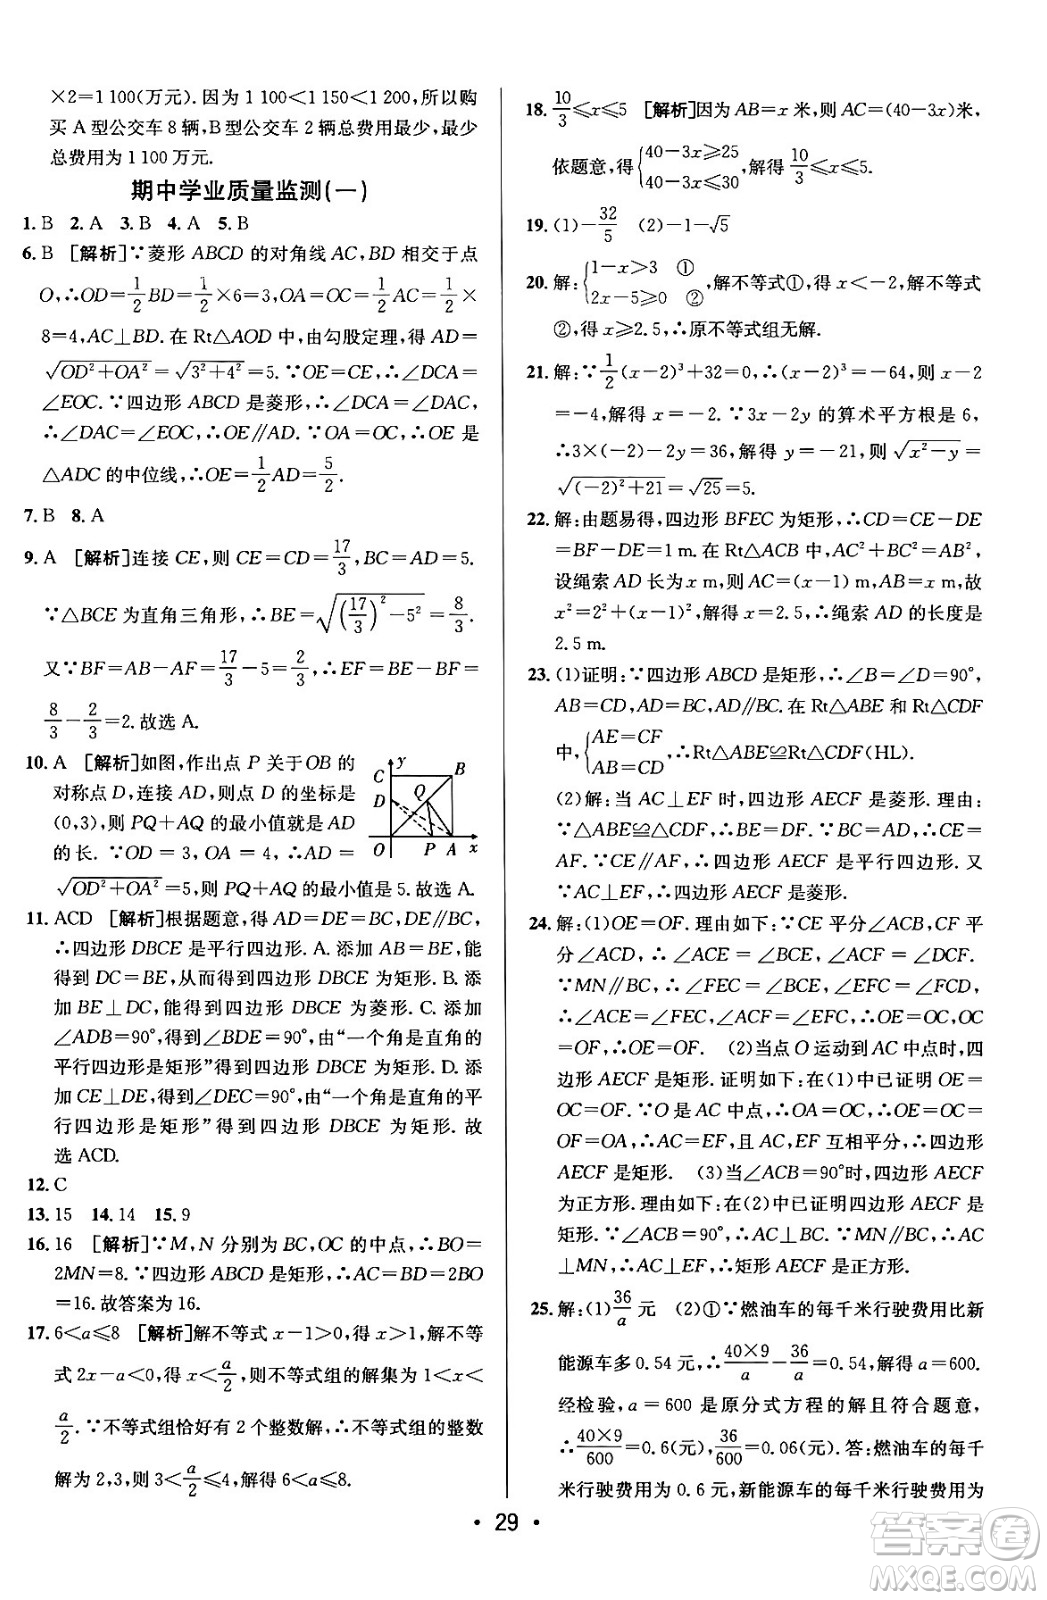 ×2=1 100(万元). 因为 1 100<1 150<1 200, 所以购
买 A 型公交车 8 辆, B 型公交车 2 辆总费用最少, 最少
总费用为 1 100 万元.
期中学业质量监测(一)
1. B 2. A 3. B 4. A 5. B
6. B [解析]∵菱形 ABCD 的对角线 AC, BD 相交于点
O, ∴OD=1/2BD=1/2×6=3, OA=OC=1/2AC=1/2×
8=4, AC⊥BD. 在 Rt△AOD 中, 由勾股定理, 得 AD=
√(OD²+OA²)=√(3²+4²)=5. ∵OE=CE, ∴∠DCA=
∠EOC. ∵四边形 ABCD 是菱形, ∴∠DCA=∠DAC,
∴∠DAC=∠EOC, ∴OE∥AD. ∵OA=OC, ∴OE 是
△ADC 的中位线, ∴OE=1/2AD=5/2.
7. B 8. A
9. A [解析]连接 CE, 则 CE=CD=17/3, BC=AD=5.
∵△BCE 为直角三角形, ∴BE=√((17/3)²-5²)=8/3.
又∵BF=AB-AF=17/3-5=2/3, ∴EF=BE-BF=
8/3-2/3=2. 故选 A.
10. A [解析]如图, 作出点 P 关于OB 的
对称点 D, 连接 AD, 则点 D 的坐标是
(0,3), 则 PQ+AQ 的最小值就是 AD
的长. ∵OD=3, OA=4, ∴AD=
√(OD²+OA²)=5, 则 PQ+AQ 的最小值是 5. 故选 A.
y
C B
D Q
O P A x
11. ACD [解析]根据题意, 得 AD=DE=BC, DE∥BC,
∴四边形 DBCE 是平行四边形. A. 添加 AB=BE, 能
得到 DC=BE, 从而得到四边形 DBCE 为矩形. B. 添
加 BE⊥DC, 能得到四边形 DBCE 为菱形. C. 添加
∠ADB=90°, 得到∠BDE=90°, 由“一个角是直角的
平行四边形是矩形”得到四边形 DBCE 为矩形. D. 添
加 CE⊥DE, 得到∠DEC=90°, 由“一个角是直角的平
行四边形是矩形”得到四边形 DBCE 为矩形. 故
选 ACD.
12. C
13. 15 14. 14 15. 9
16. 16 [解析]∵M, N 分别为 BC, OC 的中点, ∴BO=
2MN=8. ∵四边形 ABCD 是矩形, ∴AC=BD=2BO
=16. 故答案为 16.
17. 6<a≤8 [解析]解不等式 x-1>0, 得 x>1, 解不等
式 2x-a<0, 得 x<a/2, 则不等式组的解集为 1<x<
a/2. ∵不等式组恰好有 2 个整数解, ∴不等式组的整数
解为 2,3, 则 3<a/2≤4, 解得 6<a≤8.
18. 10/3≤x≤5 [解析]因为 AB=x 米, 则 AC=(40-3x)米,
依题意, 得{40-3x≥25 40-3x≤30, 解得10/3≤x≤5.
19. (1)-32/5 (2)-1-√5
20. 解: {1-x>3 ① 2x-5≥0 ②, 解不等式①, 得 x<-2, 解不等式
②, 得 x≥2.5, ∴原不等式组无解.
21. 解: ∵1/2(x-2)³+32=0, ∴(x-2)³=-64, 则 x-2
=-4, 解得 x=-2. ∵3x-2y 的算术平方根是 6,
∴3×(-2)-2y=36, 解得 y=-21, 则 √(x²-y)=
√((-2)²+21)=√25=5.
22. 解: 由题易得, 四边形 BFEC 为矩形, ∴CD=CE-DE
=BF-DE=1 m. 在 Rt△ACB 中, AC²+BC²=AB²,
设绳索 AD 长为 x m, 则 AC=(x-1)m, AB=x m, 故
x²=2²+(x-1)², 解得 x=2.5, ∴绳索 AD 的长度是
2.5 m.
23. (1)证明: ∵四边形 ABCD 是矩形, ∴∠B=∠D=90°,
AB=CD, AD=BC, AD∥BC. 在 Rt△ABE 和 Rt△CDF
中, {AE=CF AB=CD, ∴Rt△ABE≌Rt△CDF(HL).
(2)解: 当 AC⊥EF 时, 四边形 AECF 是菱形. 理由:
∵△ABE≌△CDF, ∴BE=DF. ∵BC=AD, ∴CE=
AF. ∵CE∥AF, ∴四边形 AECF 是平行四边形. 又
∵AC⊥EF, ∴四边形 AECF 是菱形.
24. 解: (1)OE=OF. 理由如下: ∵CE 平分∠ACB, CF 平
分∠ACD, ∴∠ACE=∠BCE, ∠ACF=∠DCF.
∵MN∥BC, ∴∠FEC=∠BCE, ∠EFC=∠DCF,
∴∠ACE=∠FEC, ∠ACF=∠EFC, ∴OE=OC, OC
=OF, ∴OE=OF. (2)当点 O 运动到 AC 中点时, 四边
形 AECF 是矩形. 证明如下: 由(1)可得 OE=
OC=OF. ∵O 是 AC 中点, ∴OA=OC, ∴OA=OE=
OF=OA, ∴AC=EF, 且 AC, EF 互相平分, ∴四边形
AECF 是矩形. (3)当∠ACB=90°时, 四边形 AECF
为正方形. 理由如下: 在(2)中已证明四边形 AECF 是
矩形. ∵∠ACB=90°, ∴AC⊥BC. ∵MN∥BC, ∴AC
⊥MN, 即 AC⊥EF, ∴矩形 AECF 是正方形.
25. 解: (1)36/a元 (2)①∵燃油车的每千米行驶费用比新
能源车多 0.54 元, ∴40×9/a-36/a=0.54, 解得 a=600.
经检验, a=600 是原分式方程的解且符合题意,
∴40×9/600=0.6(元), 36/600=0.06(元). 答: 燃油车的每千
米行驶费用为 0.6 元, 新能源车的每千米行驶费用为
• 29 •
答案圈
MXQE.COM